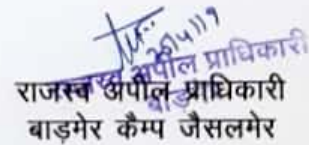 राजस्व अपील प्राधिकारी
बाड़
राजस्व अपील प्राधिकारी
बाड़मेर कैम्प जैसलमेर